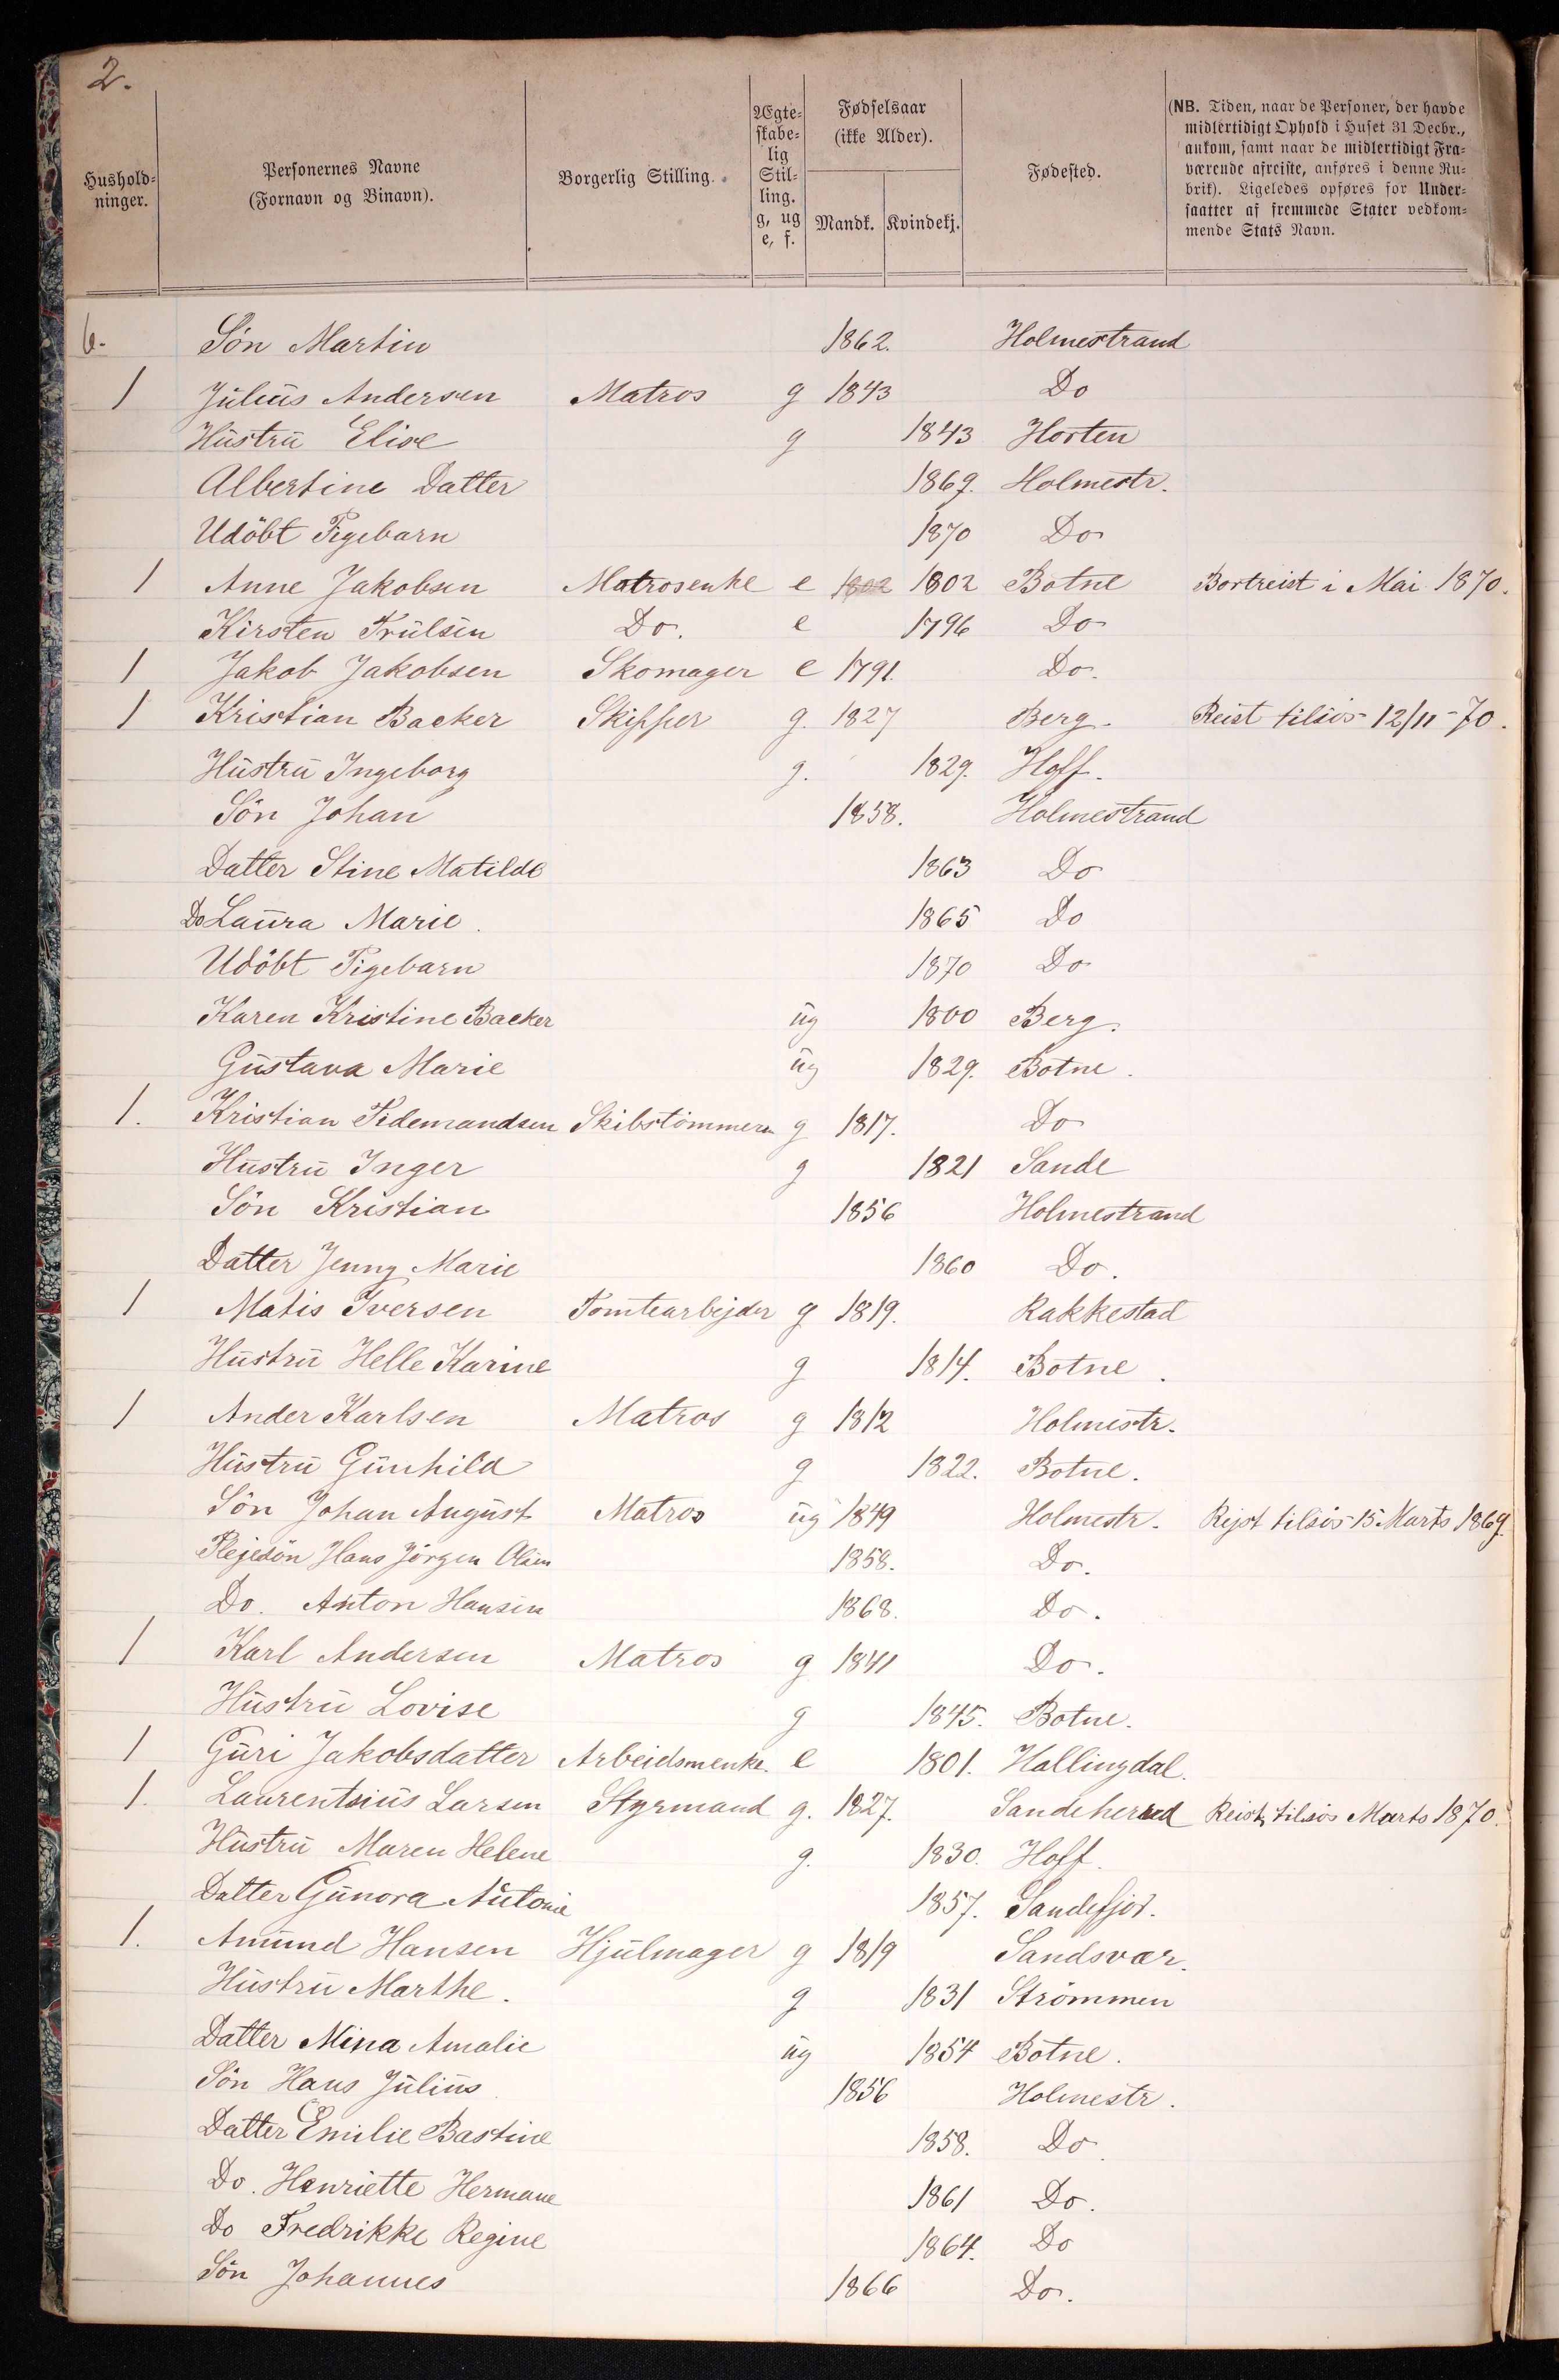 2.
Hushold-
ninger.
Personernes Navne
(Fornavn og Binavn).
Borgerlig Stilling.
Ægte-
skabe-
lig
Stil-
ling.
g, ug
e, f.
Fødselsaar
(ikke Alder).
Mandk. Kvindekj.
Fødested.
(NB. Tiden, naar de Personer, der havde
midlertidigt Ophold i Huset 31 Decbr.,
ankom, samt naar de midlertidigt Fra-
værende afreiste, anføres i denne Ru-
brik). Ligeledes opføres for Under-
saatter af fremmede Stater vedkom-
mende Stats Navn.
6. Sön Martin 1862. Holmestrand
1 Julius Andersen Matros g 1843 Do
Hustru Elise g 1843 Horten
Albertine Datter 1869. Holmestr.
Udöbt Pigebarn 1870 Do
1 Anne Jakobsen Matrosenke e 1802 1802 Botne Bortreist i Mai 1870.
Kirsten Trulsen Do. e 1796 Do
1 Jakob Jakobsen Skomager e 1791. Do.
1 Kristian Backer Skipper g. 1827 Berg. Reist tilsös 12/11-70.
Hustru Ingeborg g. 1829. Hoff.
Sön Johan 1858. Holmestrand
Datter Stine Matilde 1863 Do
Do Laura Marie. 1865 Do
Udöbt Pigebarn 1870 Do
Karen Kristine Backer ug 1800 Berg.
Gustava Marie ug 1829. Botne.
1. Kristian Tidemandsen Skibstömmerm g 1817. Do
Hustru Inger g 1821 Sande
Sön Kristian 1856 Holmestrand
Datter Jenny Marie 1860 Do.
1 Matis Iversen Tomtearbejder g 1819. Rakkestad
Hustru Helle Karine g 1814. Botne.
1 Ander Karlsen Matros g 1812 Holmestr.
Hustru Gunhild g 1822. Botne.
Sön Johan August Matros ug 1849 Holmestr. Rejst tilsös 15 Marts 1869.
Plejesön Hans Jörgen Olsen 1858. Do.
Do. Anton Hansen 1868. Do.
1 Karl Andersen Matros g 1841 Do.
Hustru Lovise g 1845. Botne.
1 Guri Jakobsdatter Arbeidsmenke. e 1801. Hallingdal.
1. Laurentsius Larsen Styrmand g. 1827. Sandeherred Reist tilsös Marts 1870.
Hustru Maren Helene g. 1830. Hoff.
Datter Gunora Antonie 1857. Sandefjor.
1. Amund Hansen Hjulmager g 1819 Sandsvær.
Hustru Marthe. g 1831 Strömmen
Datter Mina Amalie ug 1854 Botne.
Sön Hans Julius 1856 Holmestr.
Datter Emilie Bastine 1858. Do.
Do. Henriette Hermane 1861 Do.
Do Fredrikke Regine 1864. Do
Sön Johannes 1866 Do.